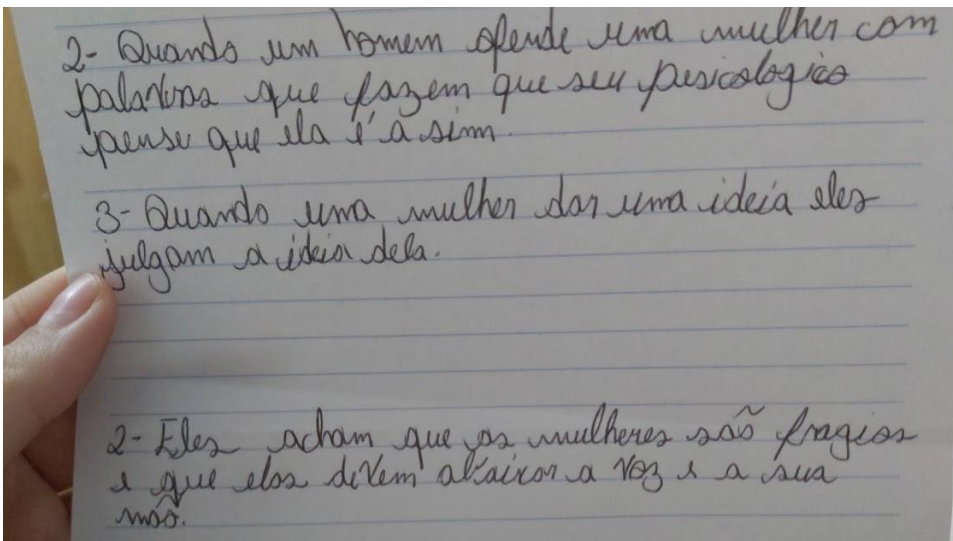 2- Quando um homem ofende uma mulher com
palavras que fazem que seu pesicologico
pense que ela é a sim.
3- Quando uma mulher dar uma ideia eles
julgam a ideia dela.
2- Eles acham que as mulheres são fragios
e que elas devem abaixar a voz e a sua
mão.